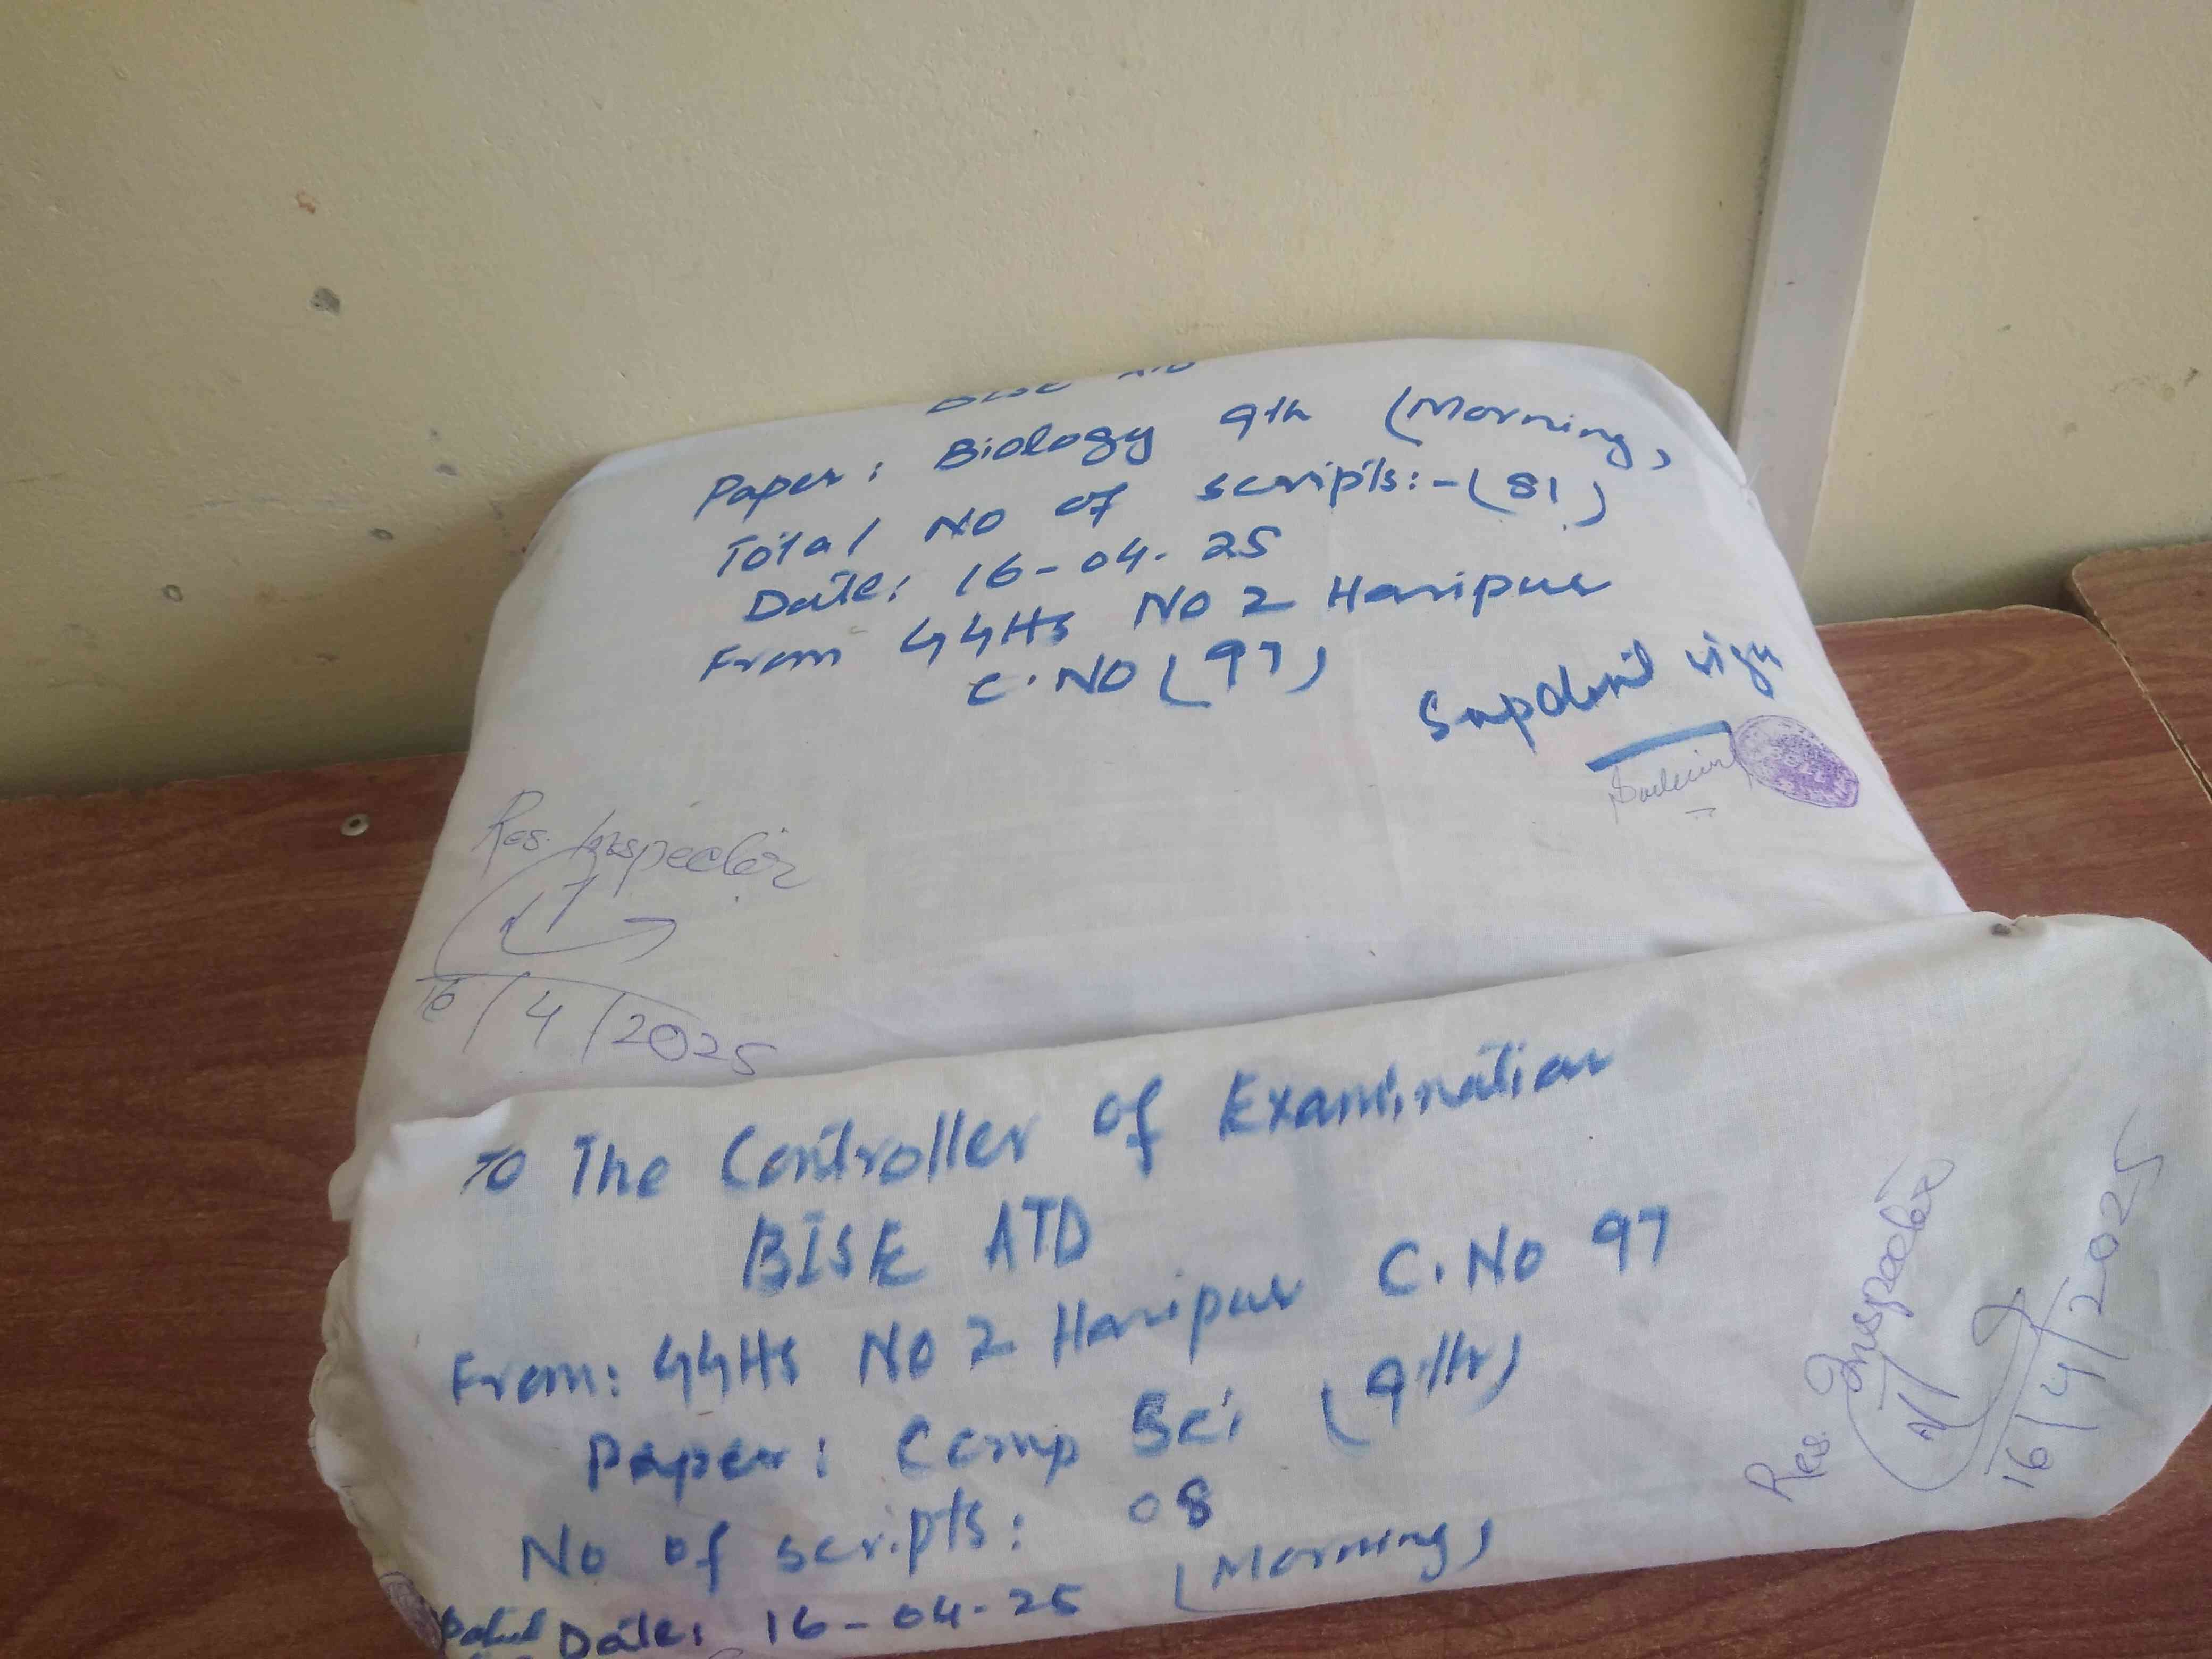 BISE ATD
Paper: Biology 9th (Morning)
Total No of scripts:-(81)
Date: 16-04-25
From GGHS No 2 Haripur
C.No (97)
Supdent sign
Res. Inspector
16/4/2025
To The Controller of Examination
BISE ATD
From: GGHS No 2 Haripur C.No 97
Paper: Comp Sci (9th)
No of scripts: 08
Date: 16-04-25 (Morning)
Res. Inspector
16/4/2025